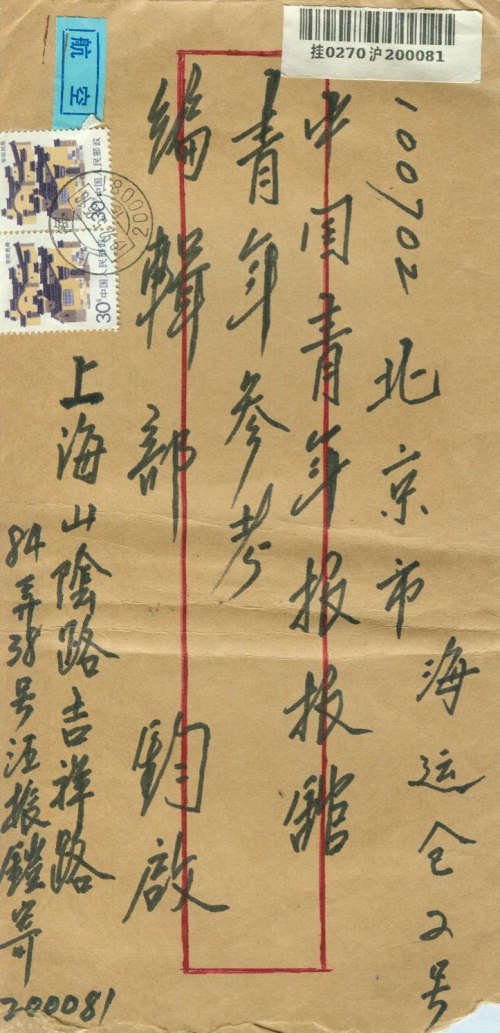 挂0270沪200081
航空
30分中国人民邮政
30分中国人民邮政
100702 北京市
海运仓2号
中国青年报报館
青年参考
编輯部 鈞啟
上海山陰路吉祥路
84弄38号汪振鎧寄
200081